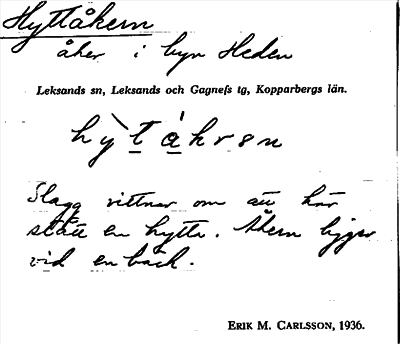 Hyttåkern
åker i byn Heden
Leksands sn, Leksands och Gagnefs tg, Kopparbergs län.
hỳtåkrən
Slagg vittnar om att här
stått en hytta. Åkern ligger
vid en bäck.
ERIK M. CARLSSON, 1936.